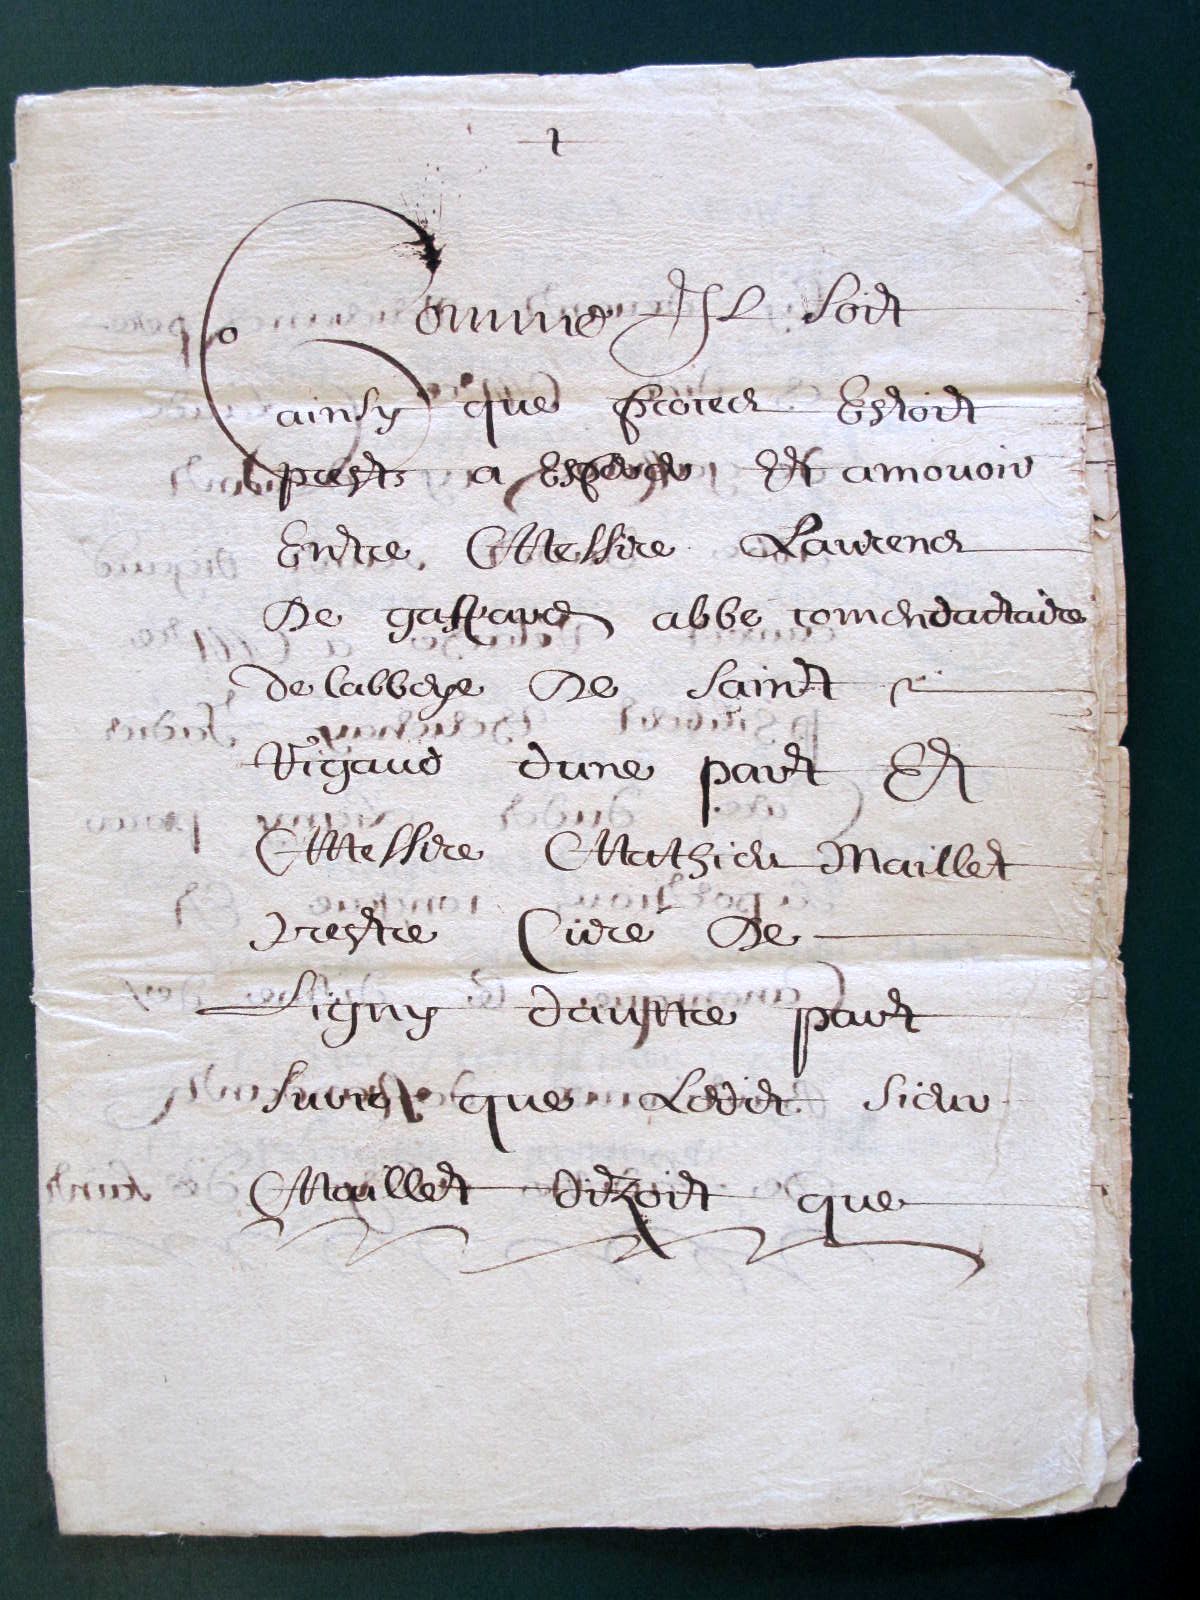 1
Comme Jl soit
ainsy que proces Estoit
prest a Esmouvoir Et amouvoir
Entre Messire Laurens
De gaspard abbe comendattaire
de labbeye De Saint
Rigaud dune part Et
Messire Mathieu Maillet
prestre Cure De
Ligny daustre part
sur ce que Ledit sieur
Maillet dizoit que